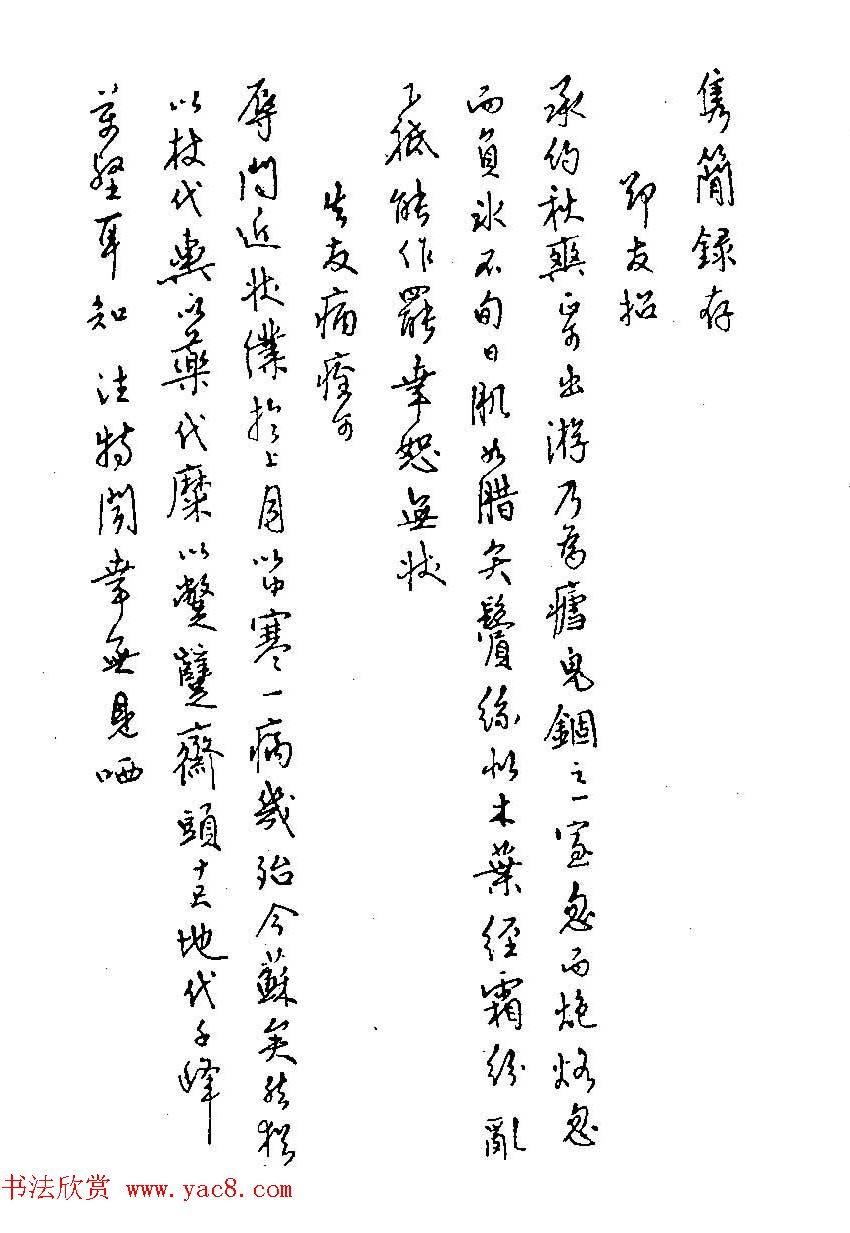 隽簡録存
却友招
承約秋爽區區出游乃爲瘧鬼錮之一室忽而炮烙忽
而負冰不旬日肌如腊矣鬢絲似木葉經霜紛亂
下祇能作罷幸恕無狀
告友病痊可
辱問近狀僕於上月以中寒一病幾殆今蘇矣然猶
以杖代輿以藥代糜以蹩躠齋頭十五地代千峰
萬壑耳知注特聞幸無見哂
书法欣赏 www.yac8.com